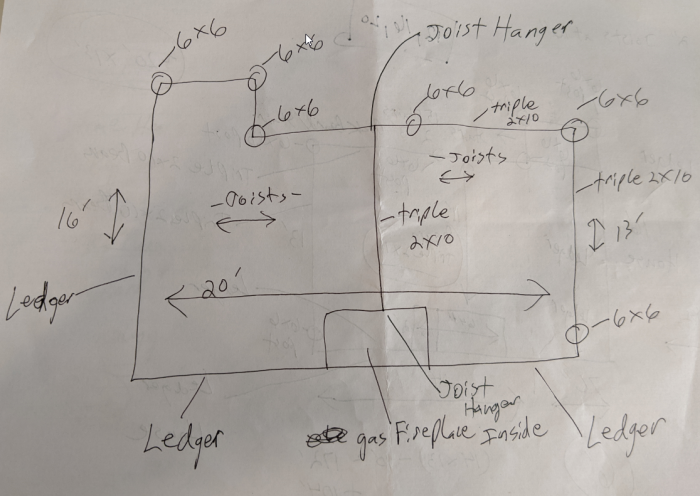 6x6
6x6
Joist Hanger
6x6
6x6
triple
2x10
6x6
-Joists
triple 2x10
16'
-Joists-
triple
2x10
13'
20'
Ledger
6x6
Joist
Hanger
Ledger
gas Fireplace Inside
Ledger